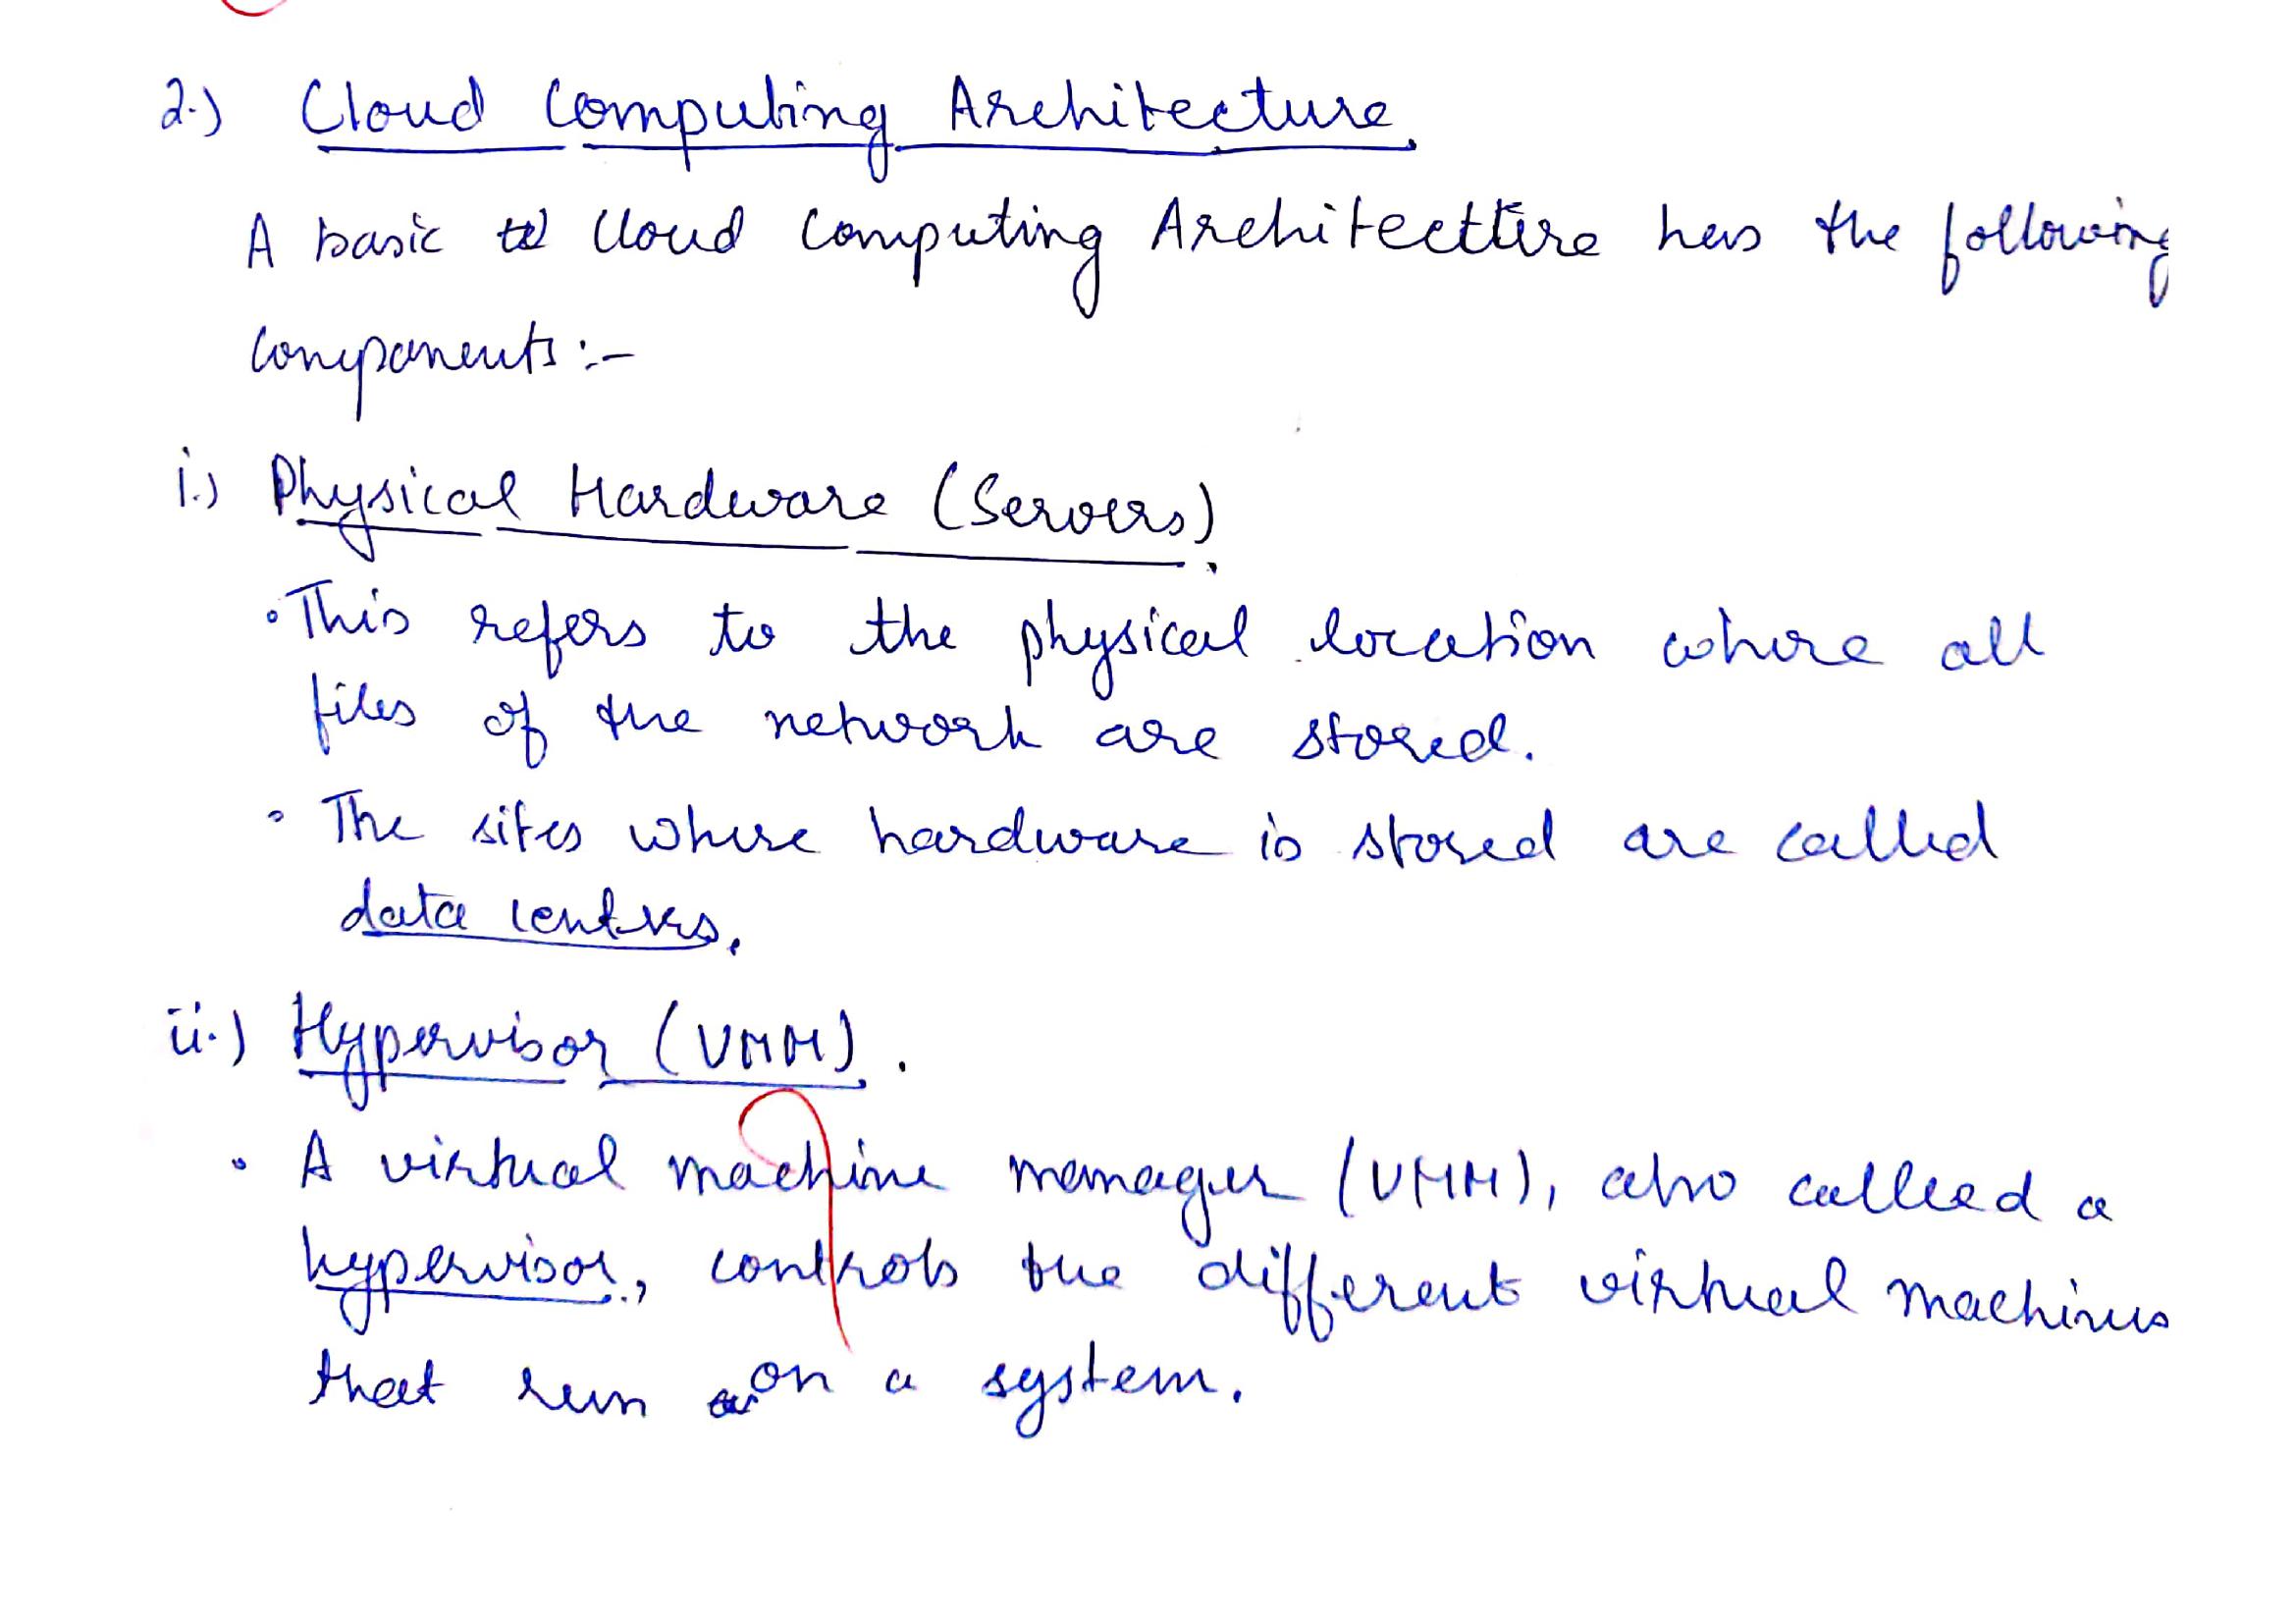 2.) Cloud Computing Architecture.
A basic Cloud Computing Architecture has the following
components:-
i.) Physical Hardware (Servers).
• This refers to the physical location where all
files of the network are stored.
• The sites where hardware is stored are called
data centres.
ii.) Hypervisor (VMM).
• A virtual machine manager (VMM), also called a
hypervisor, controls the different virtual machines
that run on a system.